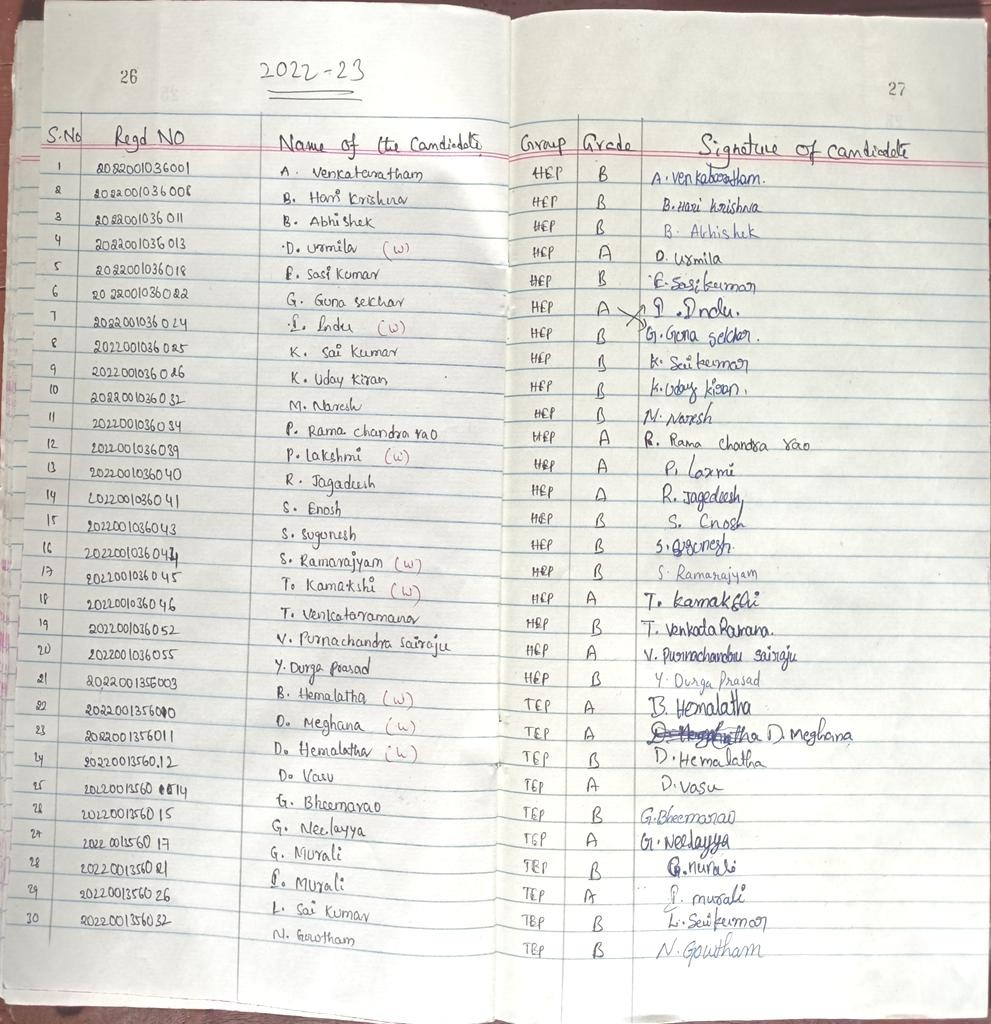 26
2022-23
27
S.No Regd NO Name of the Candidate Group Grade Signature of candidate
1 2022001036001 A. Venkataratham HEP B A. Venkataratham.
2 2022001036008 B. Hari Krishna HEP B B. Hari Krishna
3 2022001036011 B. Abhishek HEP B B. Abhishek
4 2022001036013 D. Urmila (W) HEP A D. Urmila
5 2022001036018 E. Sasi Kumar HEP B E. Sasi kumar
6 2022001036022 G. Guna Sekhar HEP A I. Indu.
7 2022001036024 I. Indu (W) HEP B G. Guna Sekhar.
8 2022001036025 K. Sai Kumar HEP B K. Sai kumar
9 2022001036026 K. Uday Kiran HEP B K. Uday kiran.
10 2022001036032 M. Naresh HEP B M. Naresh
11 2022001036034 P. Rama chandra rao HEP A P. Rama chandra rao
12 2022001036039 P. Lakshmi (W) HEP A P. Laxmi
13 2022001036040 R. Jagadeesh HEP A R. Jagedeesh
14 2022001036041 S. Enosh HEP B S. Enosh
15 2022001036043 S. Sugunesh HEP B S. Sugunesh.
16 2022001036044 S. Ramarajyam (W) HEP B S. Ramarajyam
17 2022001036045 T. Kamakshi (W) HEP A T. Kamakshi
18 2022001036046 T. Venkataramana HEP B T. Venkoda Ramana.
19 2022001036052 V. Purnachandra Sairaju HEP A V. Purnachandru Sairaju
20 2022001036055 Y. Durga Prasad HEP B Y. Durga Prasad
21 2022001356003 B. Hemalatha (W) TEP A B. Hemalatha
22 2022001356010 D. Meghana (W) TEP A D. Meghana
23 2022001356011 D. Hemalatha (W) TEP B D. Hemalatha
24 2022001356012 D. Vasu TEP A D. Vasu
25 2022001356014 G. Bheemarao TEP B G. Bheemarao
26 2022001356015 G. Neelayya TEP A G. Neelayya
27 2022001356017 G. Murali TEP B G. murali
28 2022001356021 I. Murali TEP A I. murali
29 2022001356026 L. Sai Kumar TEP B L. Sai kumar
30 2022001356032 N. Gowtham TEP B N. Gowtham